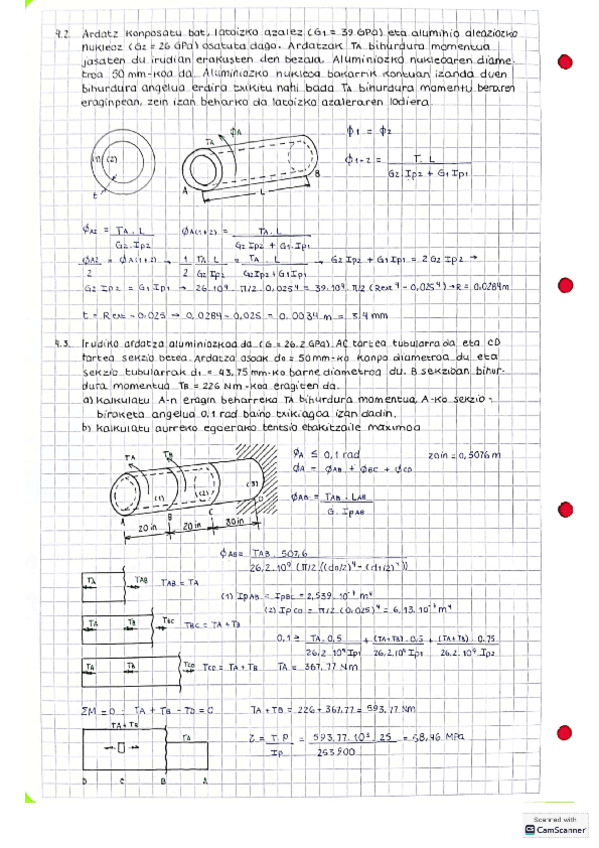 4.2. Ardatz konposatu bat, latoizko azalez (G1 = 39 GPa) eta aluminio aleaziozko
nukleoz (G2 = 26 GPa) osatuta dago. Ardatzak TA bihurdura momentua
jasaten du irudian erakusten den bezala. Aluminiozko nukleoaren diame-
troa 50 mm-koa da. Aluminiozko nukleoa bakarrik kontuan izanda duen
bihurdura angelua erdira txikitu nahi bada TA bihurdura momentu beraren
eraginpean, zein izan beharko da latoizko azaleraren lodiera.
(1) (2)
t
TA
ϕA
A
B
L
ϕ1 = ϕ2
ϕ1-2 = T. L / G2. Ip2 + G1 Ip1
ϕA2 = TA. L / G2. Ip2
ϕA(1+2) = TA. L / G2 Ip2 + G1. Ip1
ϕA2 / 2 = ϕA(1+2) → 1/2 TA. L / G2 Ip2 = TA. L / G2Ip2 + G1Ip1 → G2 Ip2 + G1Ip1 = 2 G2 Ip2 →
G2 Ip2 = G1Ip1 → 26.10⁹. π/2. 0,025⁴ = 39.10⁹. π/2 (Rext⁴ - 0,025⁴) → R = 0,0284m
t = Rext - 0,025 → 0,0284 - 0,025 = 0,0034 m = 3,4 mm
4.3. Irudiko ardatza aluminiozkoa da (G = 26.2 GPa). AC tartea tubularra da eta CD
tartea sekzio betea. Ardatza osoak d0 = 50 mm-ko kanpo diametroa du eta
sekzio tubularrak d1 = 43,75 mm-ko barne diametroa du. B sekziban bihur-
dura momentua TB = 226 Nm-koa eragiten da.
a) Kalkulatu A-n eragin beharreko TA bihurdura momentua, A-ko sekzio-
biraketa angelua 0,1 rad baino txikiagoa izan dadin.
b) Kalkulatu aurreko egoerako tentsio ebakitzaile maximoa
TA
TB
(1)
(2)
(3)
A
B
C
D
20 in
20 in
30 in
ϕA ≤ 0,1 rad
20in = 0,5076 m
ϕA = ϕAB + ϕBC + ϕCD
ϕAB = TAB. LAB / G. IpAB
ϕAB = TAB. 507,6 / 26,2. 10⁹ (π/2 ((d0/2)⁴ - (d1/2)⁴))
TA
TAB
TAB = TA
(1) IpAB = IpBC = 2,539. 10⁻⁷ m⁴
(2) IpCD = π/2 (0,025)⁴ = 6,13. 10⁻⁷ m⁴
TA
TB
TBC
TBC = TA + TB
0,1 ≥ TA. 0,5 / 26,2. 10⁹ Ip1 + (TA+TB). 0,5 / 26,2. 10⁹ Ip1 + (TA+TB). 0,75 / 26,2. 10⁹. Ip2
TA
TB
TCD
TCD = TA + TB
TA = 367,77 Nm
ΣM = 0 ; TA + TB - TD = 0
TA + TB = 226 + 367,77 = 593,77 Nm
TA + TB
TA
D
C
B
A
τ = T. P / Ip = 593,77. 10³. 25 / 253900 = 58,46 MPa
Scanned with
CamScanner